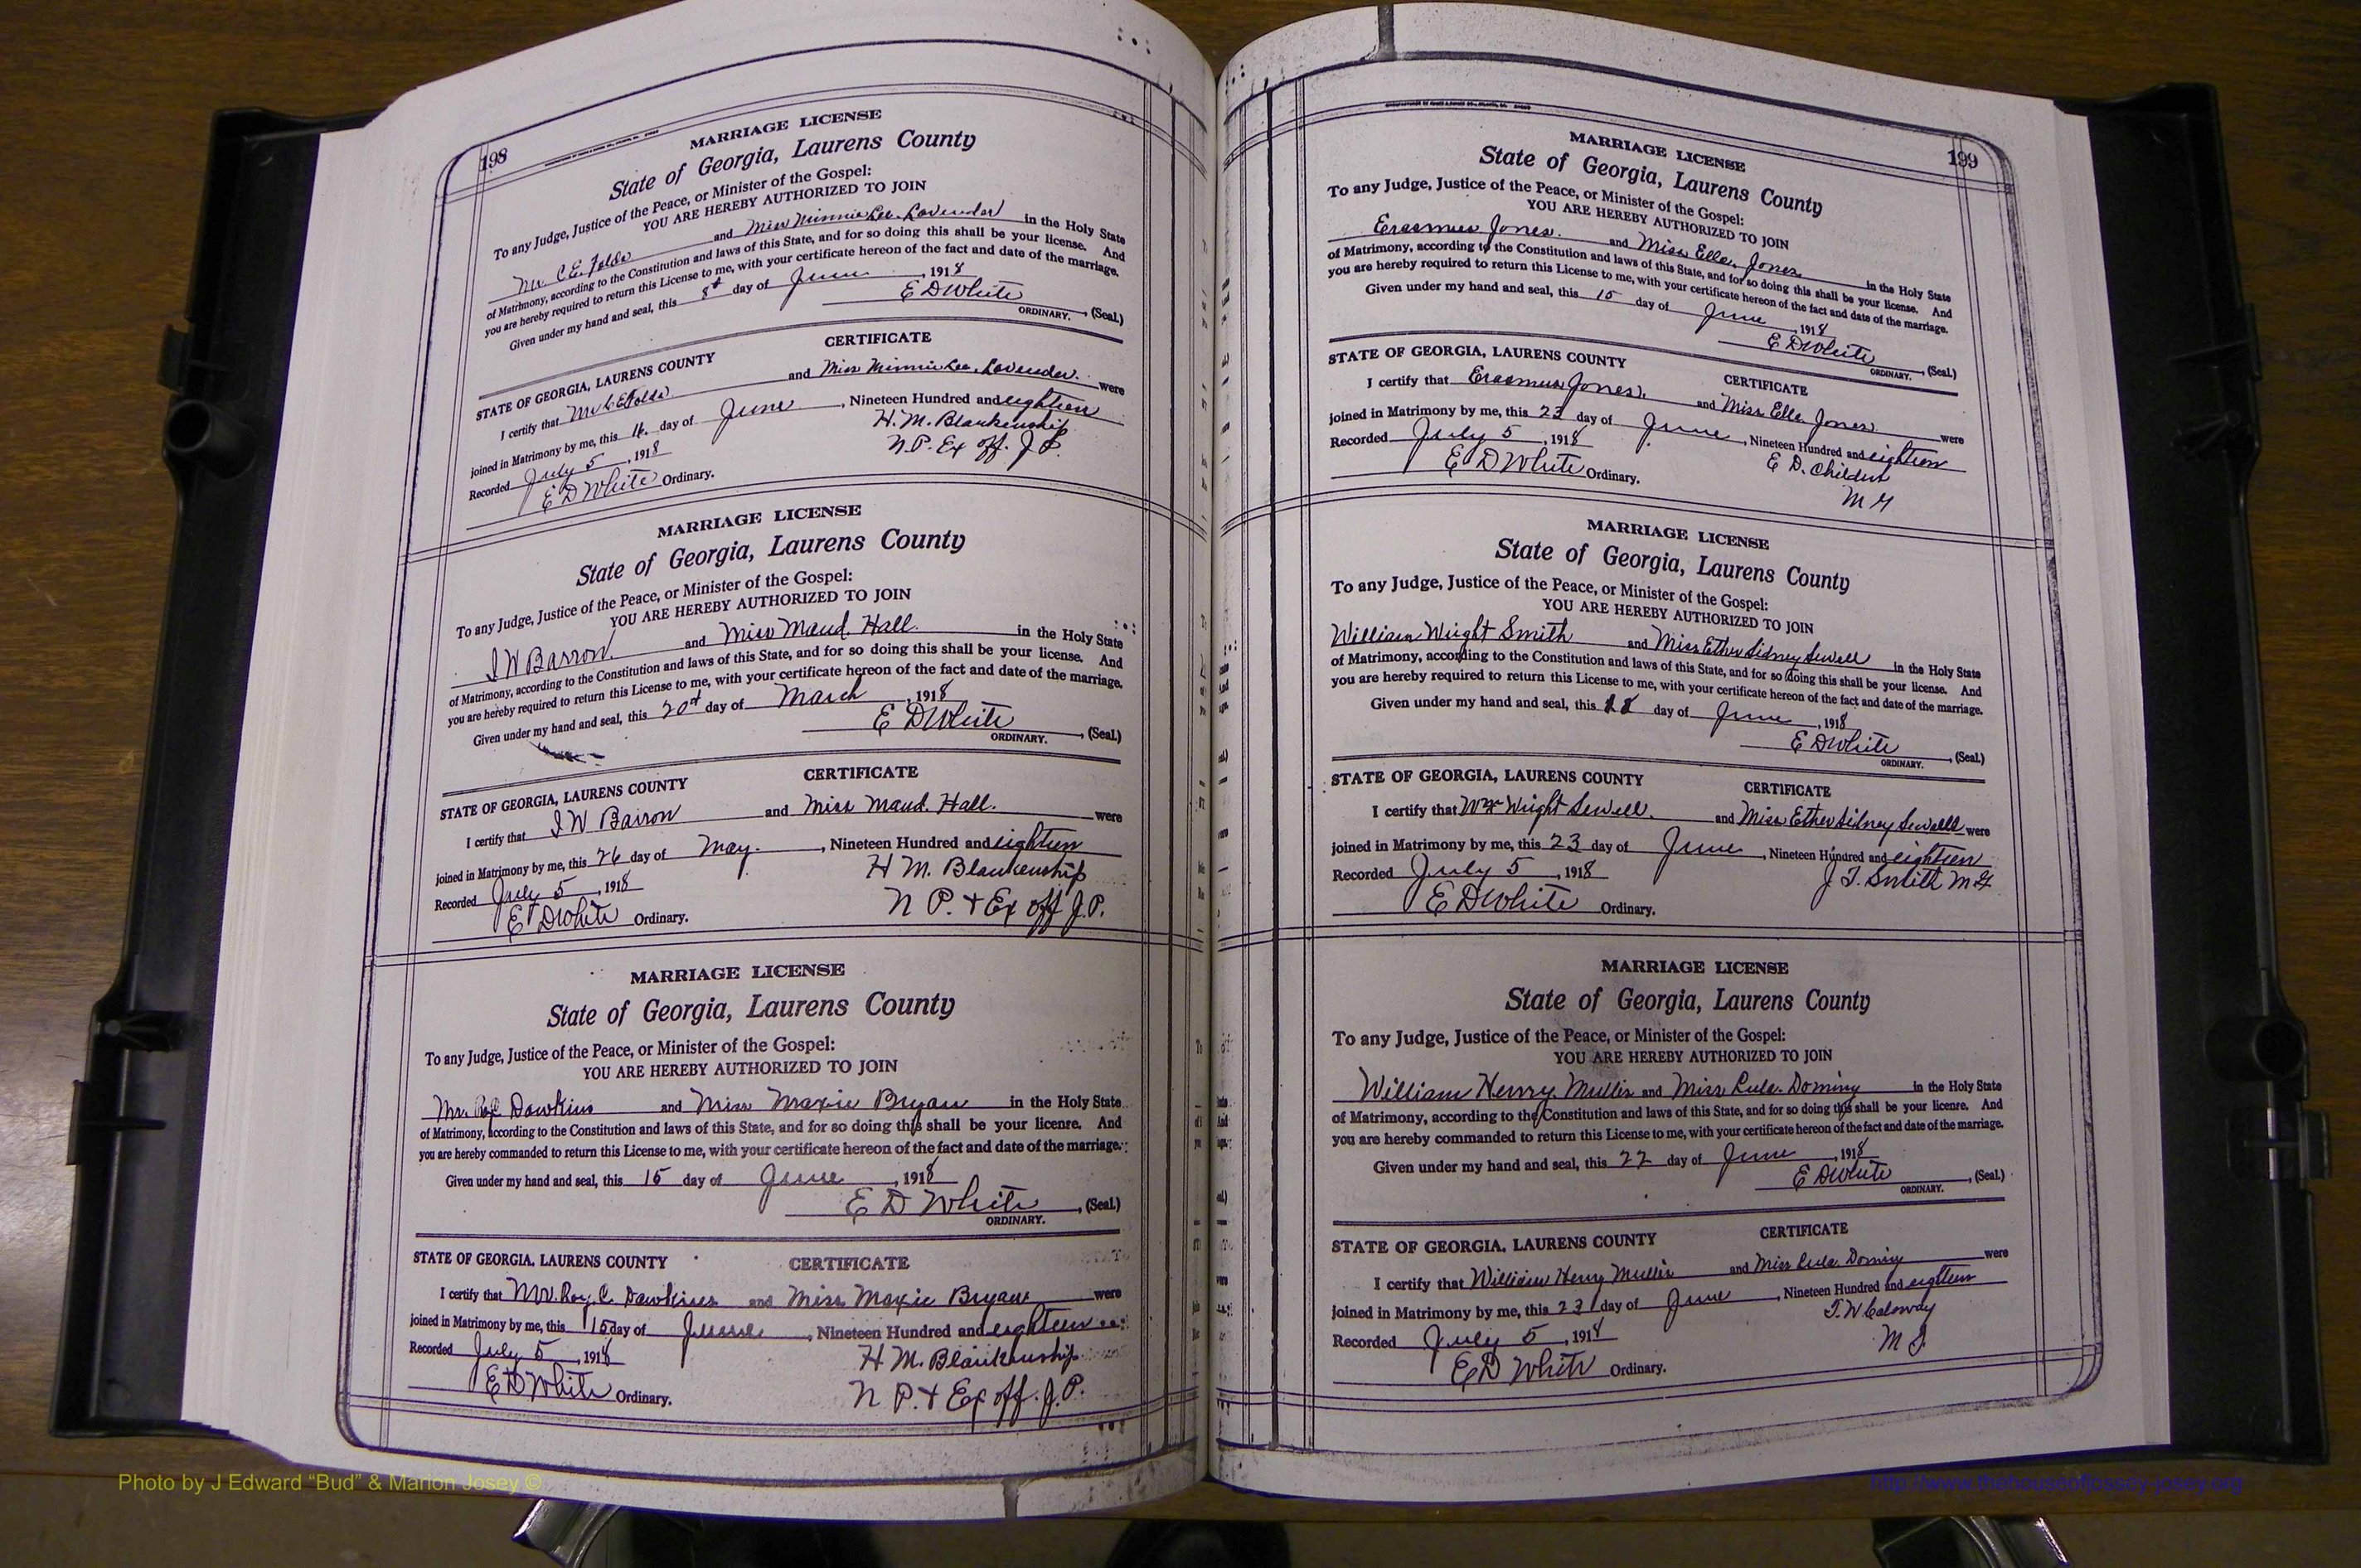 198
MARRIAGE LICENSE
State of Georgia, Laurens County
To any Judge, Justice of the Peace, or Minister of the Gospel:
YOU ARE HEREBY AUTHORIZED TO JOIN
Mr C E Folds and Miss Minnie Lee Lavender in the Holy State
of Matrimony, according to the Constitution and laws of this State, and for so doing this shall be your license. And
you are hereby required to return this License to me, with your certificate hereon of the fact and date of the marriage.
Given under my hand and seal, this 8t day of June, 1918
E D White, (Seal.)
ORDINARY.
CERTIFICATE
STATE OF GEORGIA, LAURENS COUNTY
I certify that Mr C E Folds and Miss Minnie Lee Lavender were
joined in Matrimony by me, this day of June, Nineteen Hundred and eighteen
H. M. Blankenship
Recorded July 5, 1918 N. P. Ex off. J P.
E D White Ordinary.
MARRIAGE LICENSE
State of Georgia, Laurens County
To any Judge, Justice of the Peace, or Minister of the Gospel:
YOU ARE HEREBY AUTHORIZED TO JOIN
I W Barron and Miss Maud Hall in the Holy State
of Matrimony, according to the Constitution and laws of this State, and for so doing this shall be your license. And
you are hereby required to return this License to me, with your certificate hereon of the fact and date of the marriage.
Given under my hand and seal, this 20t day of March, 1918
E D White, (Seal.)
ORDINARY.
CERTIFICATE
STATE OF GEORGIA, LAURENS COUNTY
I certify that I W Barron and Miss Maud Hall. were
joined in Matrimony by me, this 26 day of May, Nineteen Hundred and eighteen
Recorded July 5, 1918 H M. Blankenship
E D White Ordinary. N P. & Ex off J.P.
MARRIAGE LICENSE
State of Georgia, Laurens County
To any Judge, Justice of the Peace, or Minister of the Gospel:
YOU ARE HEREBY AUTHORIZED TO JOIN
Mr. Dawkins and Miss Maxie Bryan in the Holy State
of Matrimony, according to the Constitution and laws of this State, and for so doing this shall be your license. And
you are hereby commanded to return this License to me, with your certificate hereon of the fact and date of the marriage.
Given under my hand and seal, this 15 day of June, 1918
E D White, (Seal.)
ORDINARY.
STATE OF GEORGIA. LAURENS COUNTY CERTIFICATE
I certify that Mr. Roy. C. Dawkins and Miss Maxie Bryan were
joined in Matrimony by me, this 15 day of June, Nineteen Hundred and eighteen
Recorded July 5, 1918 H M. Blankenship
E D White Ordinary. N P. & Ex off. J.P.
199
MARRIAGE LICENSE
State of Georgia, Laurens County
To any Judge, Justice of the Peace, or Minister of the Gospel:
YOU ARE HEREBY AUTHORIZED TO JOIN
Erasmus Jones. and Miss Ella Jones in the Holy State
of Matrimony, according to the Constitution and laws of this State, and for so doing this shall be your license. And
you are hereby required to return this License to me, with your certificate hereon of the fact and date of the marriage.
Given under my hand and seal, this 15 day of June, 1918
E D White, (Seal.)
ORDINARY.
STATE OF GEORGIA, LAURENS COUNTY CERTIFICATE
I certify that Erasmus Jones, and Miss Ella Jones were
joined in Matrimony by me, this 23 day of June, Nineteen Hundred and eighteen
Recorded July 5, 1918 E D.
E D White Ordinary. M G
MARRIAGE LICENSE
State of Georgia, Laurens County
To any Judge, Justice of the Peace, or Minister of the Gospel:
YOU ARE HEREBY AUTHORIZED TO JOIN
William Wright Smith and Miss Ether Sidney Sewell in the Holy State
of Matrimony, according to the Constitution and laws of this State, and for so doing this shall be your license. And
you are hereby required to return this License to me, with your certificate hereon of the fact and date of the marriage.
Given under my hand and seal, this day of June, 1918
E D White, (Seal.)
ORDINARY.
STATE OF GEORGIA, LAURENS COUNTY CERTIFICATE
I certify that Wm Wright Sewell. and Miss Ether Sidney Sewell were
joined in Matrimony by me, this 23 day of June, Nineteen Hundred and eighteen
Recorded July 5, 1918 J. T. Smith M G
E D White Ordinary.
MARRIAGE LICENSE
State of Georgia, Laurens County
To any Judge, Justice of the Peace, or Minister of the Gospel:
YOU ARE HEREBY AUTHORIZED TO JOIN
William Henry Mullis and Miss Lula Dominy in the Holy State
of Matrimony, according to the Constitution and laws of this State, and for so doing this shall be your license. And
you are hereby commanded to return this License to me, with your certificate hereon of the fact and date of the marriage.
Given under my hand and seal, this 22 day of June, 1918
E D White, (Seal.)
ORDINARY.
STATE OF GEORGIA. LAURENS COUNTY CERTIFICATE
I certify that William Henry Mullis and Miss Lula Dominy were
joined in Matrimony by me, this 23 day of June, Nineteen Hundred and eighteen
Recorded July 5, 1918 T. W Caloway
E D White Ordinary. M G.
Photo by J Edward “Bud” & Marion Josey ©
http://www.thehouseofjossey-josey.org